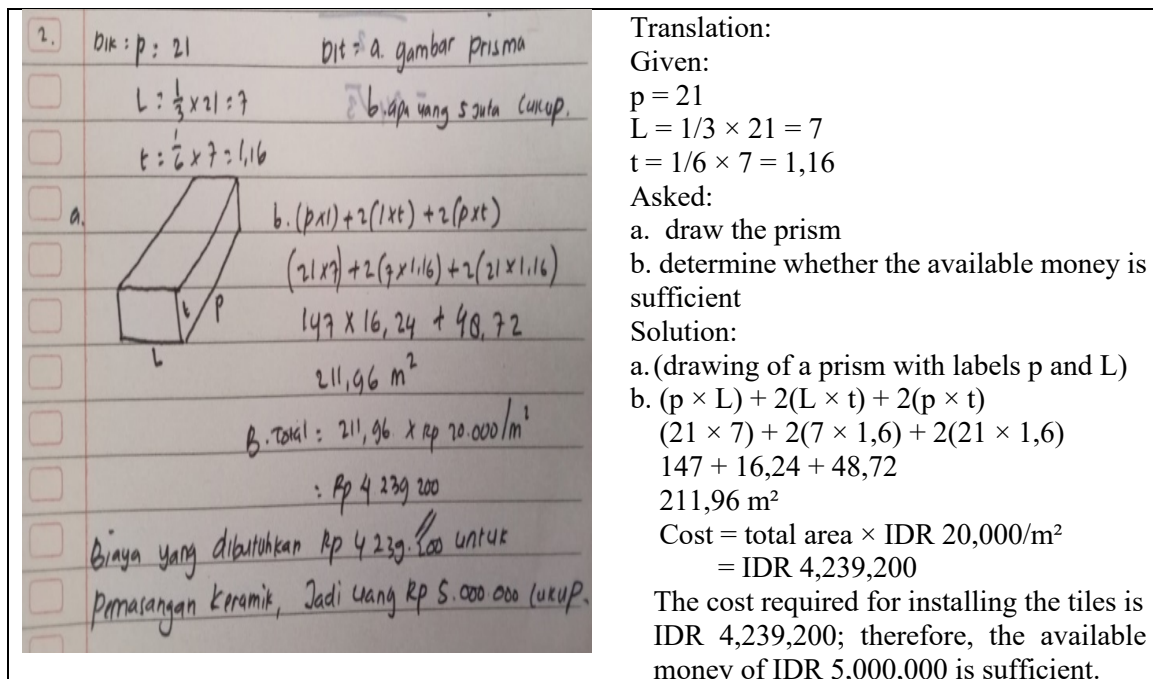 2. Dik : p : 21
L : 1/3 x 21 : 7
t : 1/6 x 7 : 1,16
Dit : a. gambar prisma
b. apa uang 5 Juta Cukup.
a.
t
p
L
b. (pxl) + 2(lxt) + 2(pxt)
(21x7) + 2(7x1,16) + 2(21x1,16)
147 x 16,24 + 48,72
211,96 m²
B. Total : 211,96 x Rp 20.000/m²
: Rp 4 239 200
Biaya yang dibutuhkan Rp 4 239.200 untuk
Pemasangan keramik, Jadi uang Rp 5.000 000 Cukup.
Translation:
Given:
p = 21
L = 1/3 × 21 = 7
t = 1/6 × 7 = 1,16
Asked:
a. draw the prism
b. determine whether the available money is
sufficient
Solution:
a. (drawing of a prism with labels p and L)
b. (p × L) + 2(L × t) + 2(p × t)
(21 × 7) + 2(7 × 1,6) + 2(21 × 1,6)
147 + 16,24 + 48,72
211,96 m²
Cost = total area × IDR 20,000/m²
= IDR 4,239,200
The cost required for installing the tiles is
IDR 4,239,200; therefore, the available
money of IDR 5,000,000 is sufficient.